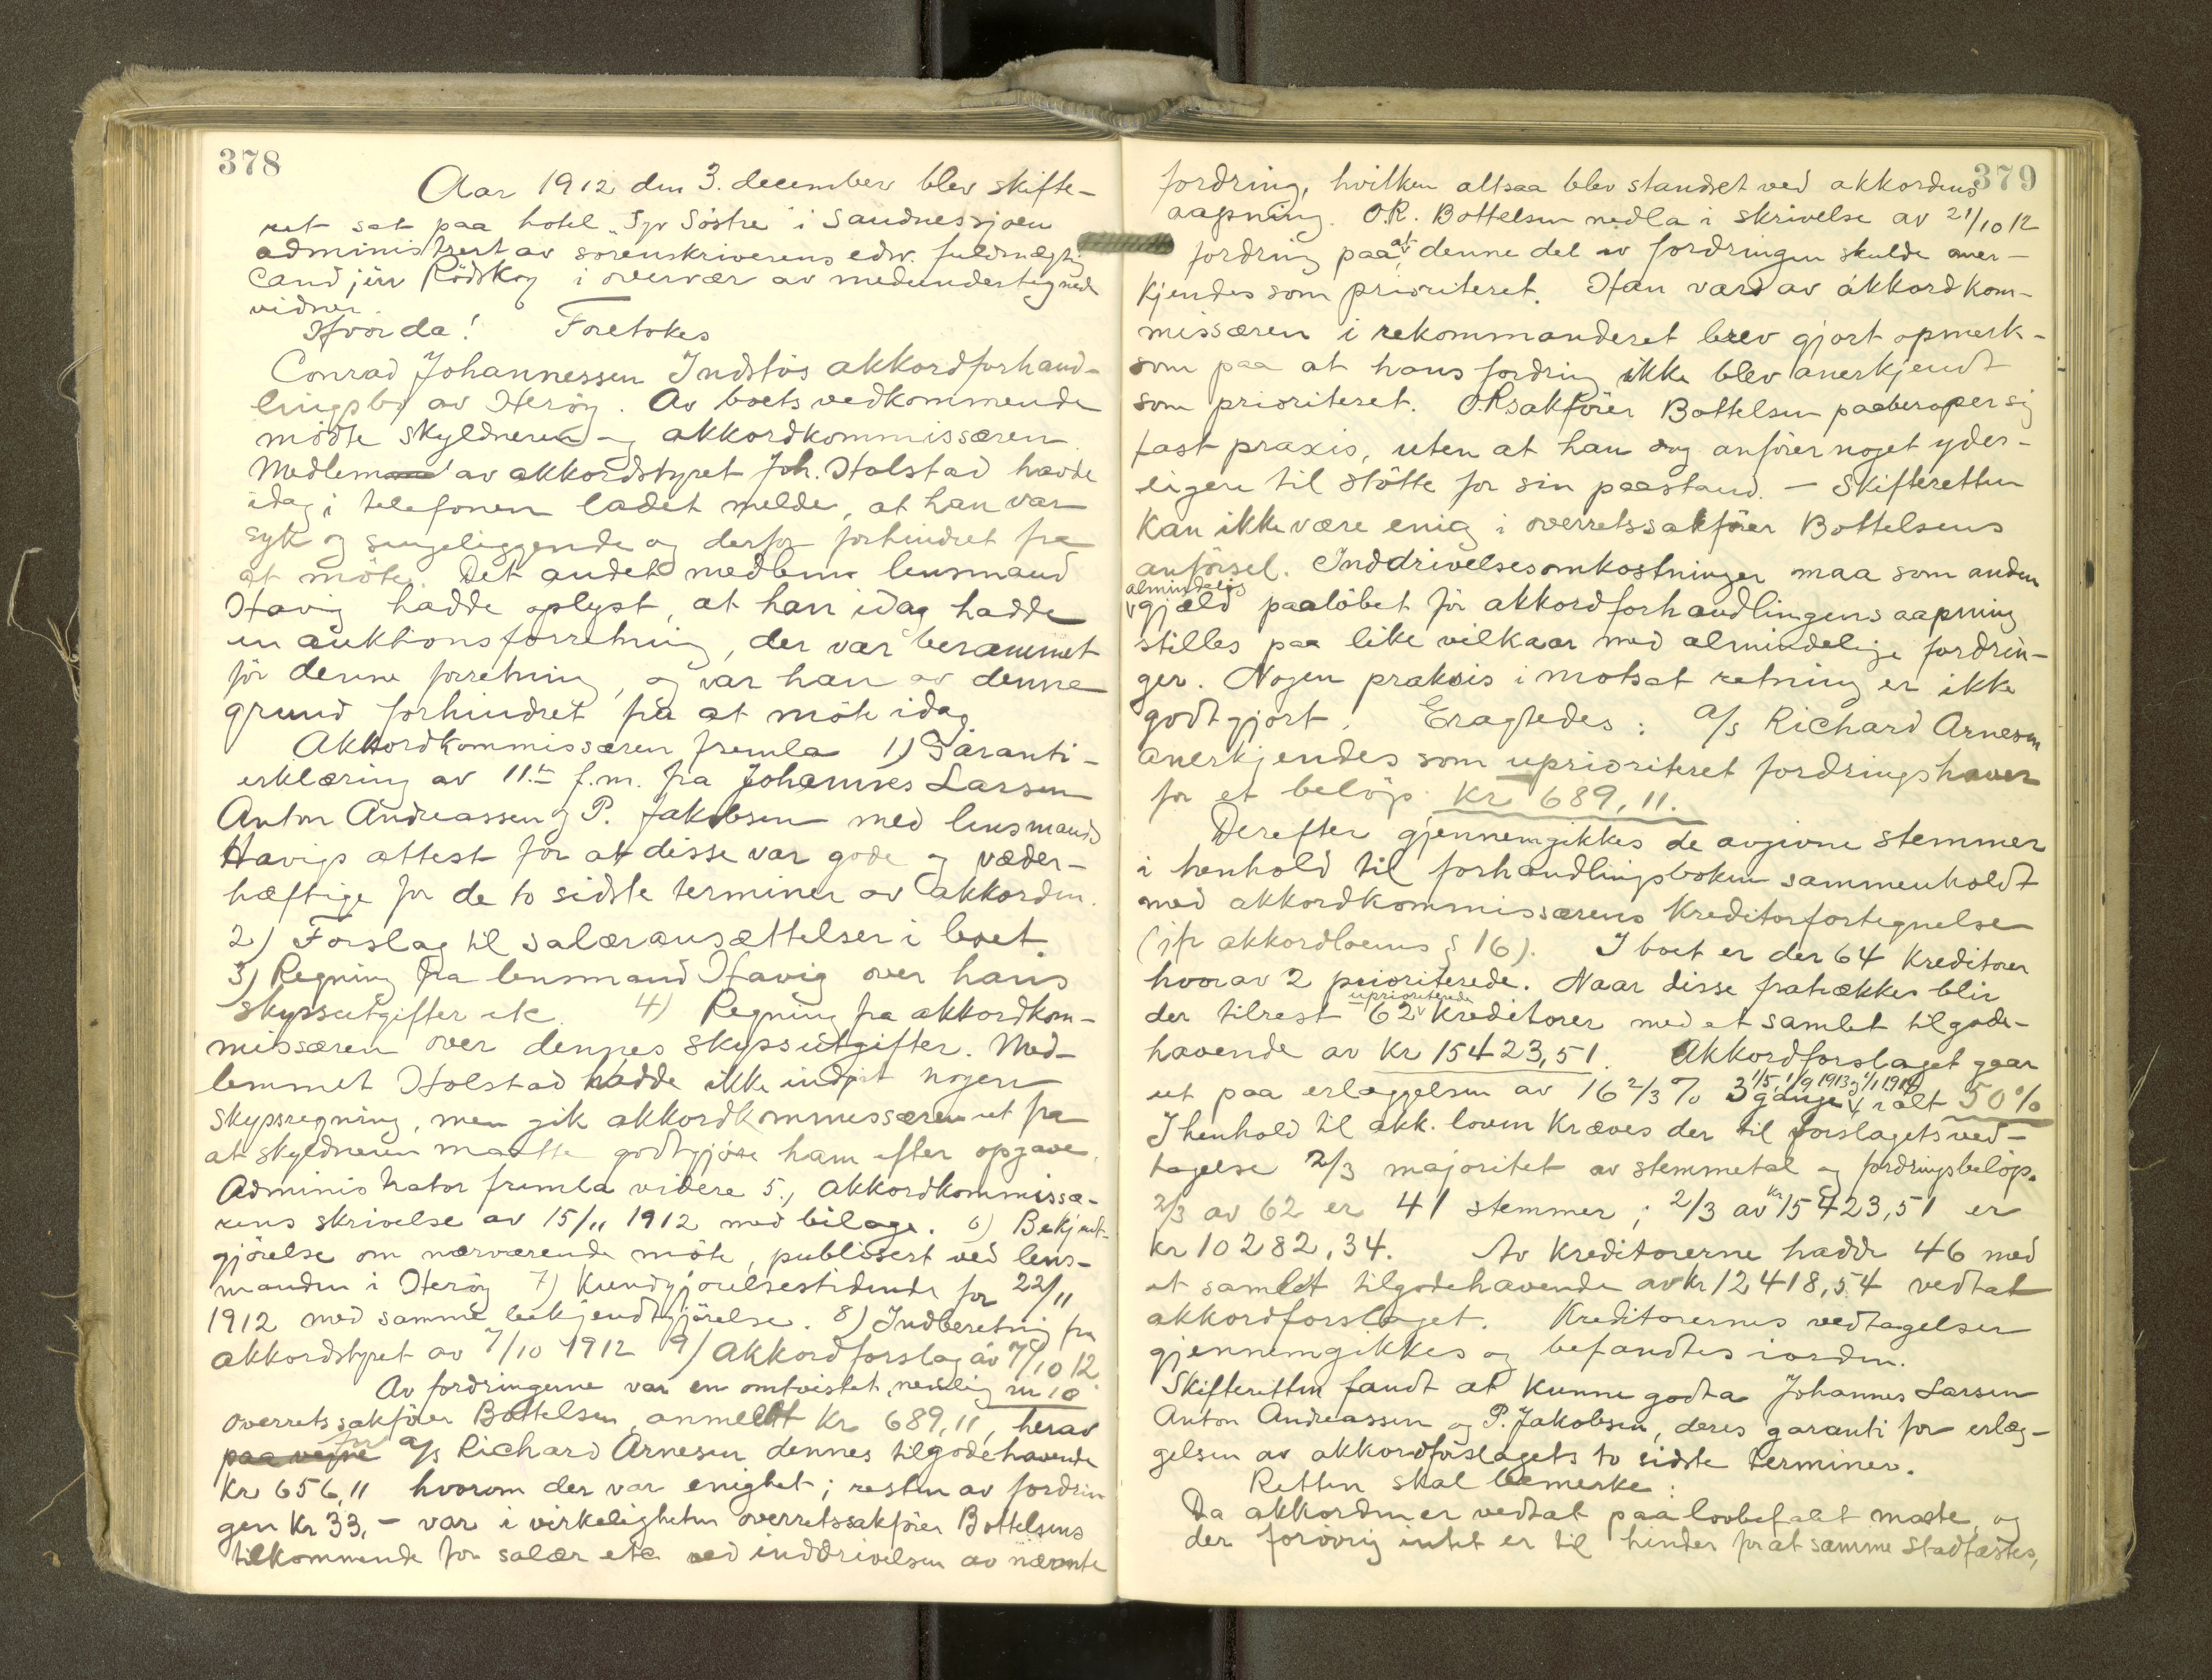 378
Aar 1912 den 3. december blev skifte-
ret sat paa hotel "Syv Söstre" i Sandnessjøen
administrert av sorenskriverens edsv. fuldmægtig
cand jur Rödskog i overvær av medundertegnede
vidner.
Hvorda! Foretokes
Conrad Johannessen Indstös akkordforhand-
lingsbo av Heröy. Av boets vedkommende
mödte skyldneren og akkordkommissæren
Medlem av akkordstyret Joh. Holstad havde
idag i telefonen ladet melde, at han var
syk og sengeliggende og derfor forhindret fra
at möte. Det andet medlem lensmand
Havig hadde oplyst, at han idag hadde
en auktionsforretning, der var berammet
för denne forretning, og var han av denne
grund forhindret fra at möte idag
Akkordkommissæren fremla 1) Garanti-
erklæring av 11.te f.m. fra Johannes Larsen
Anton Andreassen og P. Jakobsen med lensmand
Havigs attest for at disse var gode og væder-
hæftige for de to sidste terminer av akkorden.
2) Forslag til salæransættelser i boet
3) Regning fra lensmand Havig over hans
skyssutgifter etc. 4) Regning fra akkordkom-
missæren over dennes skyssutgifter. Med-
lemmet Holstad hadde ikke indgit nogen
skyssregning, men gik akkordkommissæren ut fra
at skyldneren maatte godtgjöre ham efter opgave.
Administrator fremla videre 5., akkordkommissæ-
rens skrivelse av 15/11 1912 med bilage. 6) Bekjendt-
gjörelse om nærværende möte, publisert ved lens-
manden i Heröy 7) Kundgjörelsestidende for 22/11
1912 med samme bekjendtgjörelse. 8) Indberetning fra
akkordstyret av 7/10 1912 9) Akkordforslag av 7/10 12
Av fordringerne var en omtvistet, nemlig nr 10
overretssakförer Bottelsen, anmeldt kr 689,11, herav
paa vegne for a/s Richard Arnesen dennes tilgodehavende
kr 656,11 hvorom der var enighet; resten av fordrin
gen kr 33,- var i virkeligheten overretssakförer Bottelsens
tilkommende for salær etc ved inddrivelsen av nævnte
379
fordring, hvilken altsaa blev standset ved akkordens
aapning. O.R. Bottelsen nedla i skrivelse av 21/10 12
fordring paa at denne del av fordringen skulde aner-
kjendes som prioriteret. Han var av akkordkom-
missæren i rekommanderet brev gjort opmerk-
som paa at hans fordring ikke blev anerkjendt
som prioriteret. O.R.sakförer Bottelsen paaberoper sig
fast praxis, uten at han dog anförer noget yder-
ligere til stötte for sin paastand. - Skifteretten
kan ikke være enig i overretssakförer Bottelsens
anförsel. Inddrivelsesomkostninger maa som anden
almindelig
gjæld paalöbet för akkordforhandlingens aapning
stilles paa like vilkaar med almindelige fordrin-
ger. Nogen praksis i motsat retning er ikke
godtgjort. Eragtedes: a/s Richard Arnesen
anerkjendes som uprioriteret fordringshaver
for et belöp kr 689,11.
Derefter gjennemgikkes de avgivne stemmer
i henhold til forhandlingsboken sammenholdt
med akkordkommissærens kreditorfortegnelse
(jfr akkordlovens § 16). I boet er der 64 kreditorer
hvorav 2 prioriterede. Naar disse fratrækkes blir
der tilrest 62 uprioriterede kreditorer med et samlet tilgode-
havende av kr 15423,51. Akkordforslaget gaar
ut paa erlæggelsen av 16 2/3 % 3 gange 1/5, 1/9 1913 og 1/1 1914 ialt 50%
I henhold til akk. loven kræves der til forslagets ved-
tagelse 2/3 majoritet av stemmetal og fordringsbelöp.
2/3 av 62 er 41 stemmer; 2/3 av kr 15423,51 er
kr 10282,34. Av kreditorerne hadde 46 med
et samlet tilgodehavende av kr 12418,54 vedtat
akkordforslaget. Kreditorernes vedtagelser
gjennemgikkes og befandtes iorden.
Skifteretten fandt at kunne godta Johannes Larsen
Anton Andreassen og P. Jakobsen, deres garanti for erlæg-
gelsen av akkordforslagets to sidste terminer.
Retten skal bemerke:
Da akkorden er vedtat paa lovbefalt maate, og
der forövrig intet er til hinder for at samme stadfæstes,